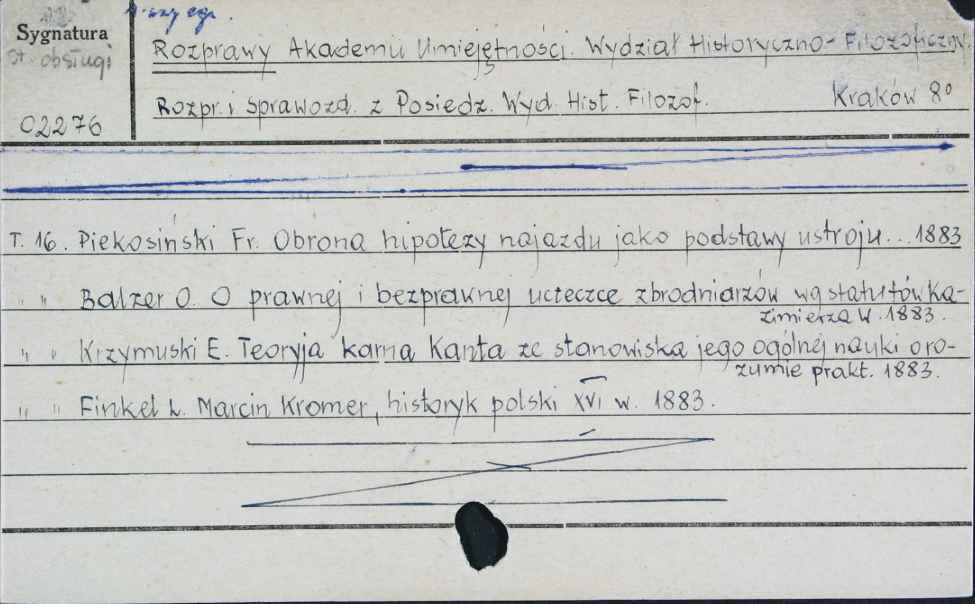 egz.
Sygnatura
st. obsługi
02276
Rozprawy Akademii Umiejętności. Wydział Historyczno-Filozoficzny
Rozpr. i Sprawozd. z Posiedz. Wyd. Hist. Filozof. Kraków 8o
T. 16. Piekosiński Fr. Obrona hipotezy najazdu jako podstawy ustroju... 1883
" " Balzer O. O prawnej i bezprawnej ucieczce zbrodniarzów wg statutów Ka-
zimierza W. 1883.
" " Krzymuski E. Teoryja karna Kanta ze stanowiska jego ogólnej nauki o ro-
zumie prakt. 1883.
" " Finkel L. Marcin Kromer, historyk polski XVI w. 1883.